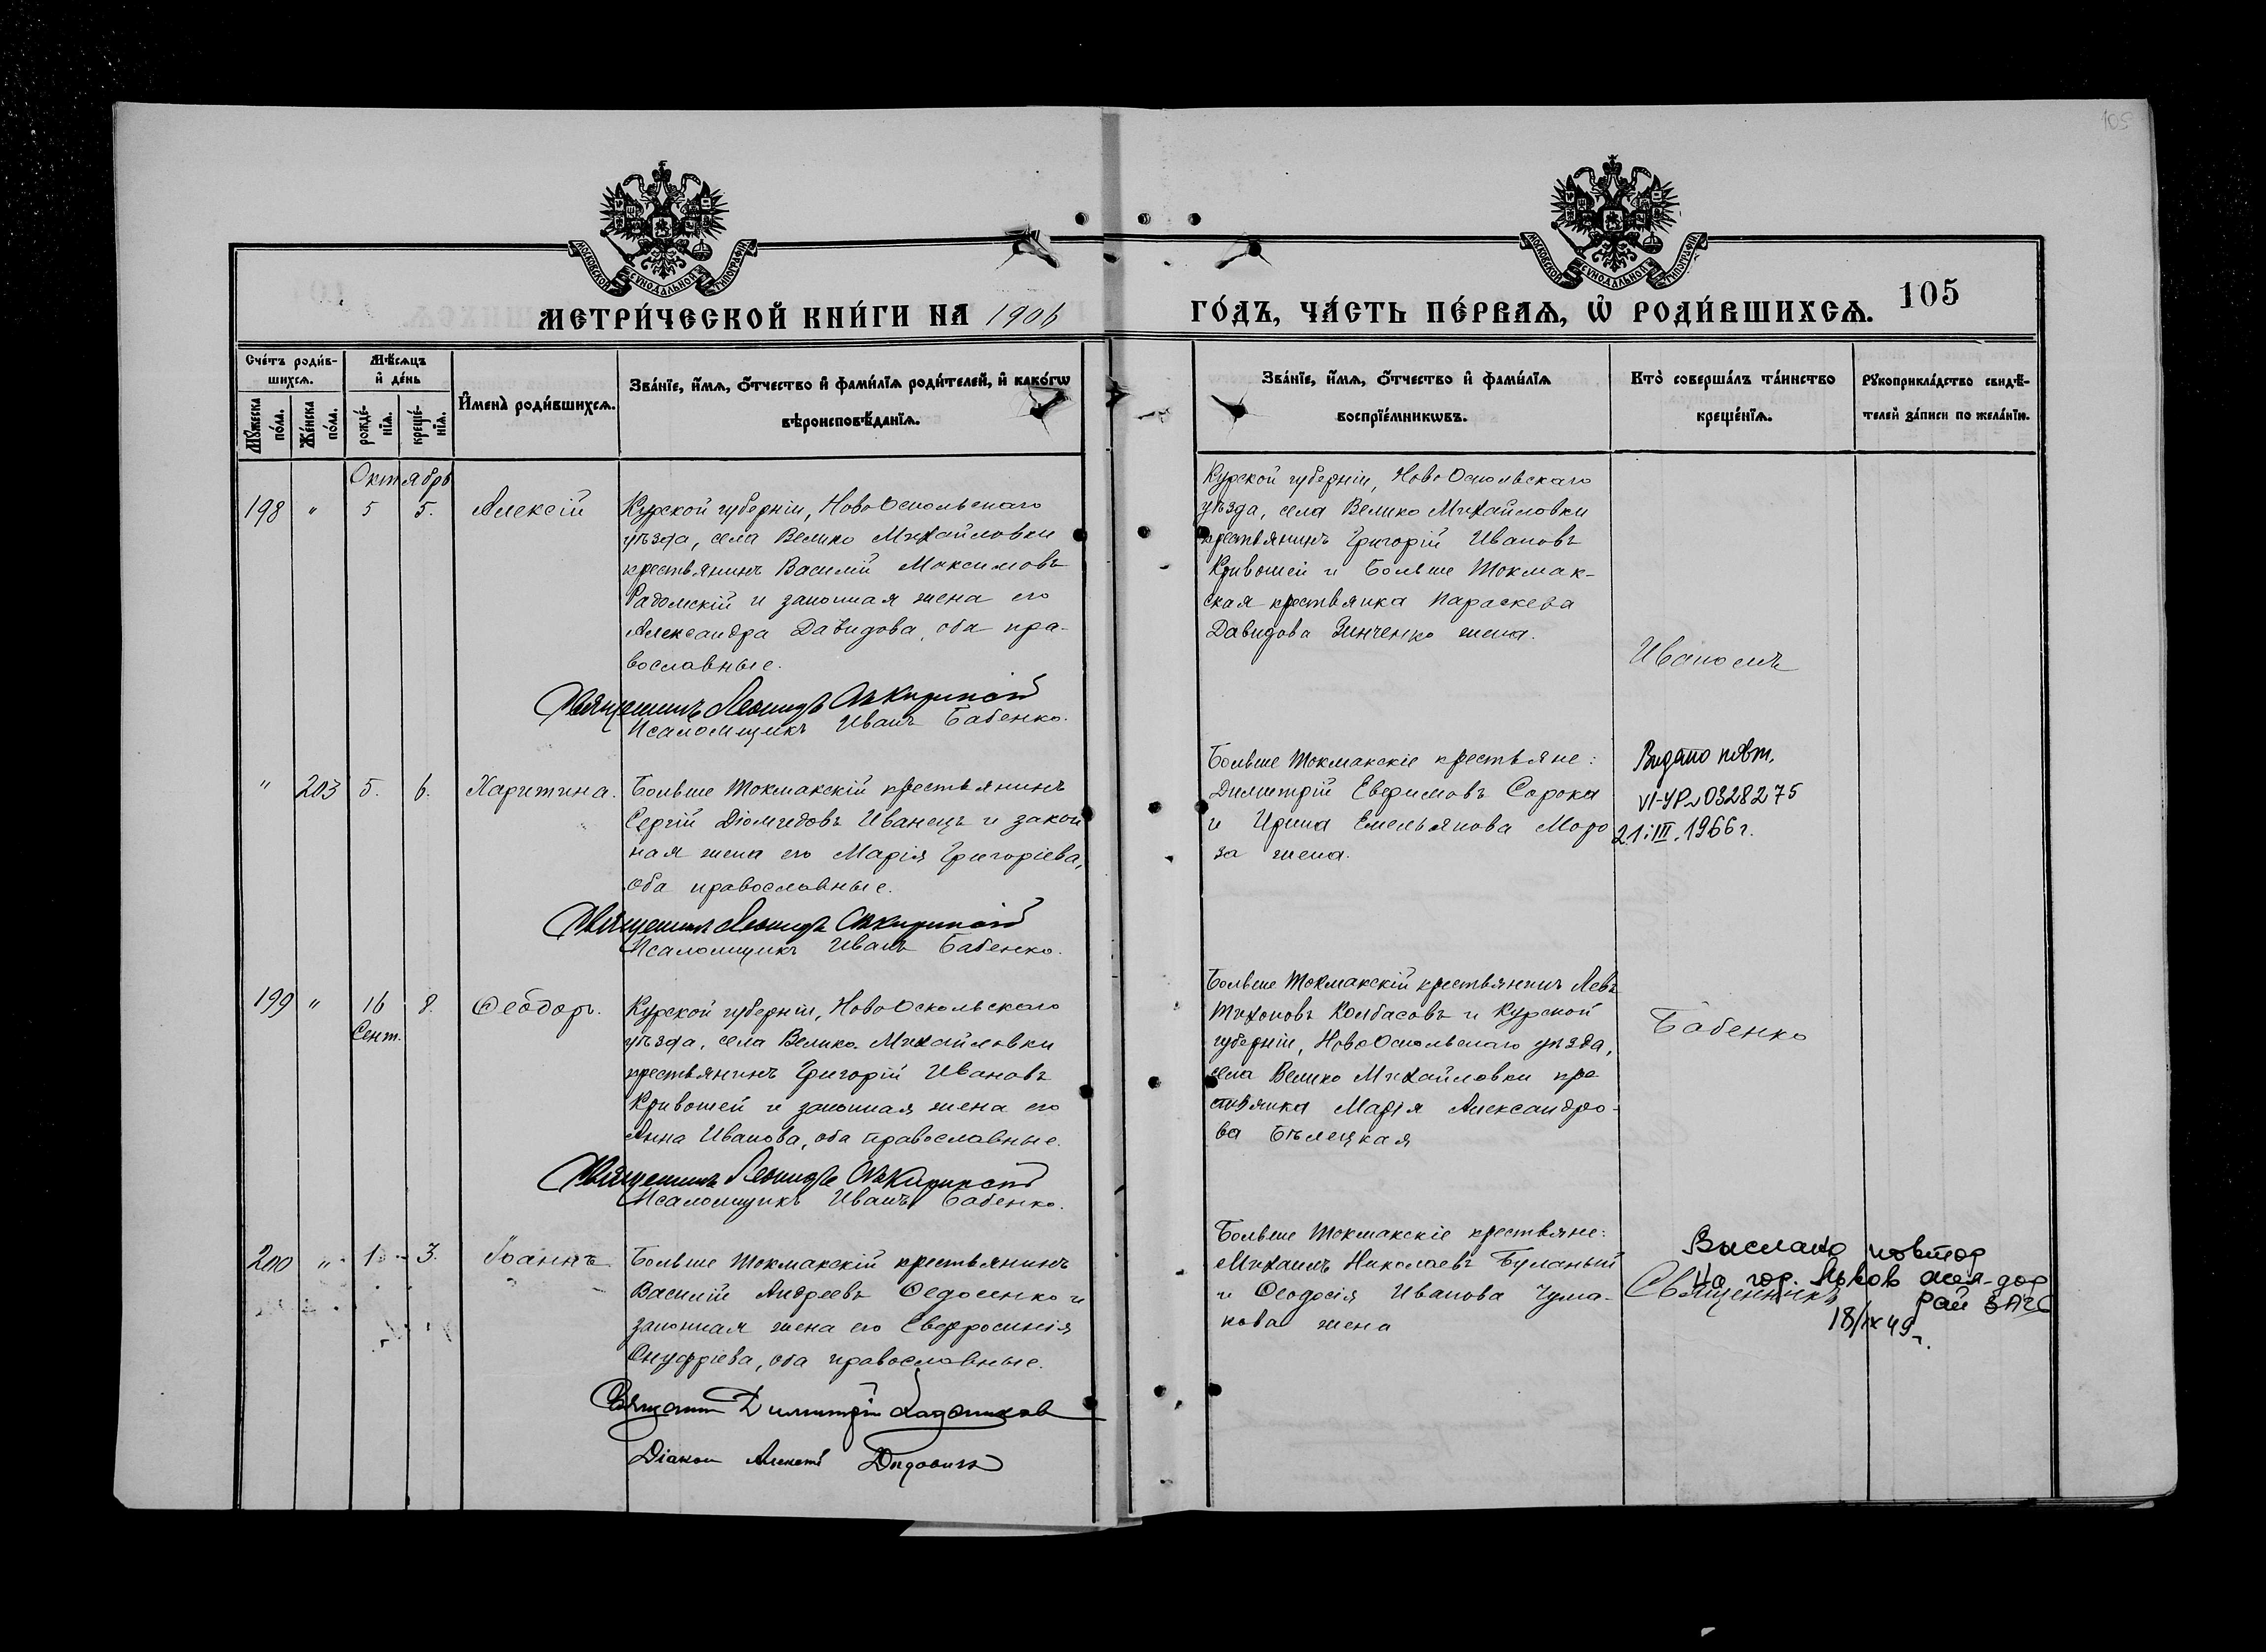 105
МОСКОВСКОЙ СѴНОДАЛЬНОЙ ТИПОГРАФІИ
МОСКОВСКОЙ СѴНОДАЛЬНОЙ ТИПОГРАФІИ
МЕТРИ́ЧЕСКОЙ КНИ́ГИ НА 1906
ГО́ДЪ, ЧА́СТЬ ПЕ́РВАѦ, Ѽ РОДИ́ВШИХСѦ. 105
Сче́тъ роди́в-
шихсѧ.
Мѣ́сѧцъ
и҆ де́нь
Мꙋ́жеска по́ла.
Же́нска по́ла.
рожде́-
нїѧ.
креще́-
нїѧ.
И҆мена̀ роди́вшихсѧ.
Зва́нїе, и҆́мѧ, ѻ҆́тчество и҆ фами́лїѧ роди́телей, и҆ како́гѡ
вѣроисповѣ́данїѧ.
Зва́нїе, и҆́мѧ, ѻ҆́тчество и҆ фами́лїѧ
воспрїе́мникѡвъ.
Кто̀ соверша́лъ та́инство
креще́нїѧ.
Рꙋкоприкла́дство свидѣ́-
телей за́писи по жела́нїю.
Октябрь
198 " 5 5. Алексій
Курской губерніи, НовоОскольскаго
уѣзда, села Велико Михайловки
крестьянинъ Василій Максимовъ
Радомскій и законная жена его
Александра Давидова, оба пра-
вославные.
Священникъ Леонидъ
Псаломщикъ Иванъ Бабенко.
Курской губерніи, НовоОскольскаго
уѣзда, села Велико Михайловки
крестьянинъ Григорій Ивановъ
Кривошей и Больше Токмак-
ская крестьянка Параскева
Давидова Зинченко жена.
" 203 5. 6. Харитина.
Больше Токмакскій крестьянинъ
Сергій Діомидовъ Иванецъ и закон
ная жена его Марія Григоріева,
оба православные.
Священникъ Леонидъ
Псаломщикъ Иванъ Бабенко.
Больше Токмакскіе крестьяне:
Димитрій Евфимовъ Сорока
и Ирина Емельянова Моро
за жена.
Видано повт.
VI-УР № 0328275
21.III.1966 г.
199 " 16 8. Ѳеодоръ.
Сент.
Курской губерніи, НовоОскольскаго
уѣзда, села Велико Михайловки
крестьянинъ Григорій Ивановъ
Кривошей и законная жена его
Анна Иванова, оба православные.
Священникъ Леонидъ
Псаломщикъ Иванъ Бабенко.
Больше Токмакскій крестьянинъ Левъ
Тихоновъ Колбасовъ и Курской
губерніи, НовоОскольскаго уѣзда,
села Велико Михайловки кре
стьянка Марія Александро-
ва Бѣлецкая
Бабенко
200 " 1 3. Іоаннъ
Больше Токмакскій крестьянинъ
Василій Андреевъ Ѳедосенко и
законная жена его Евфросинія
Онуфріева, оба православные.
Священникъ Димитрій
Діаконъ Алексѣй
Больше Токмакскіе крестьяне:
Михаилъ Николаевъ Буланый
и Ѳеодосія Иванова Чума-
кова жена
Выслано повтор
На гор. Львов жел-дор
Священникъ рай ЗАГС
18/IX 49 г.